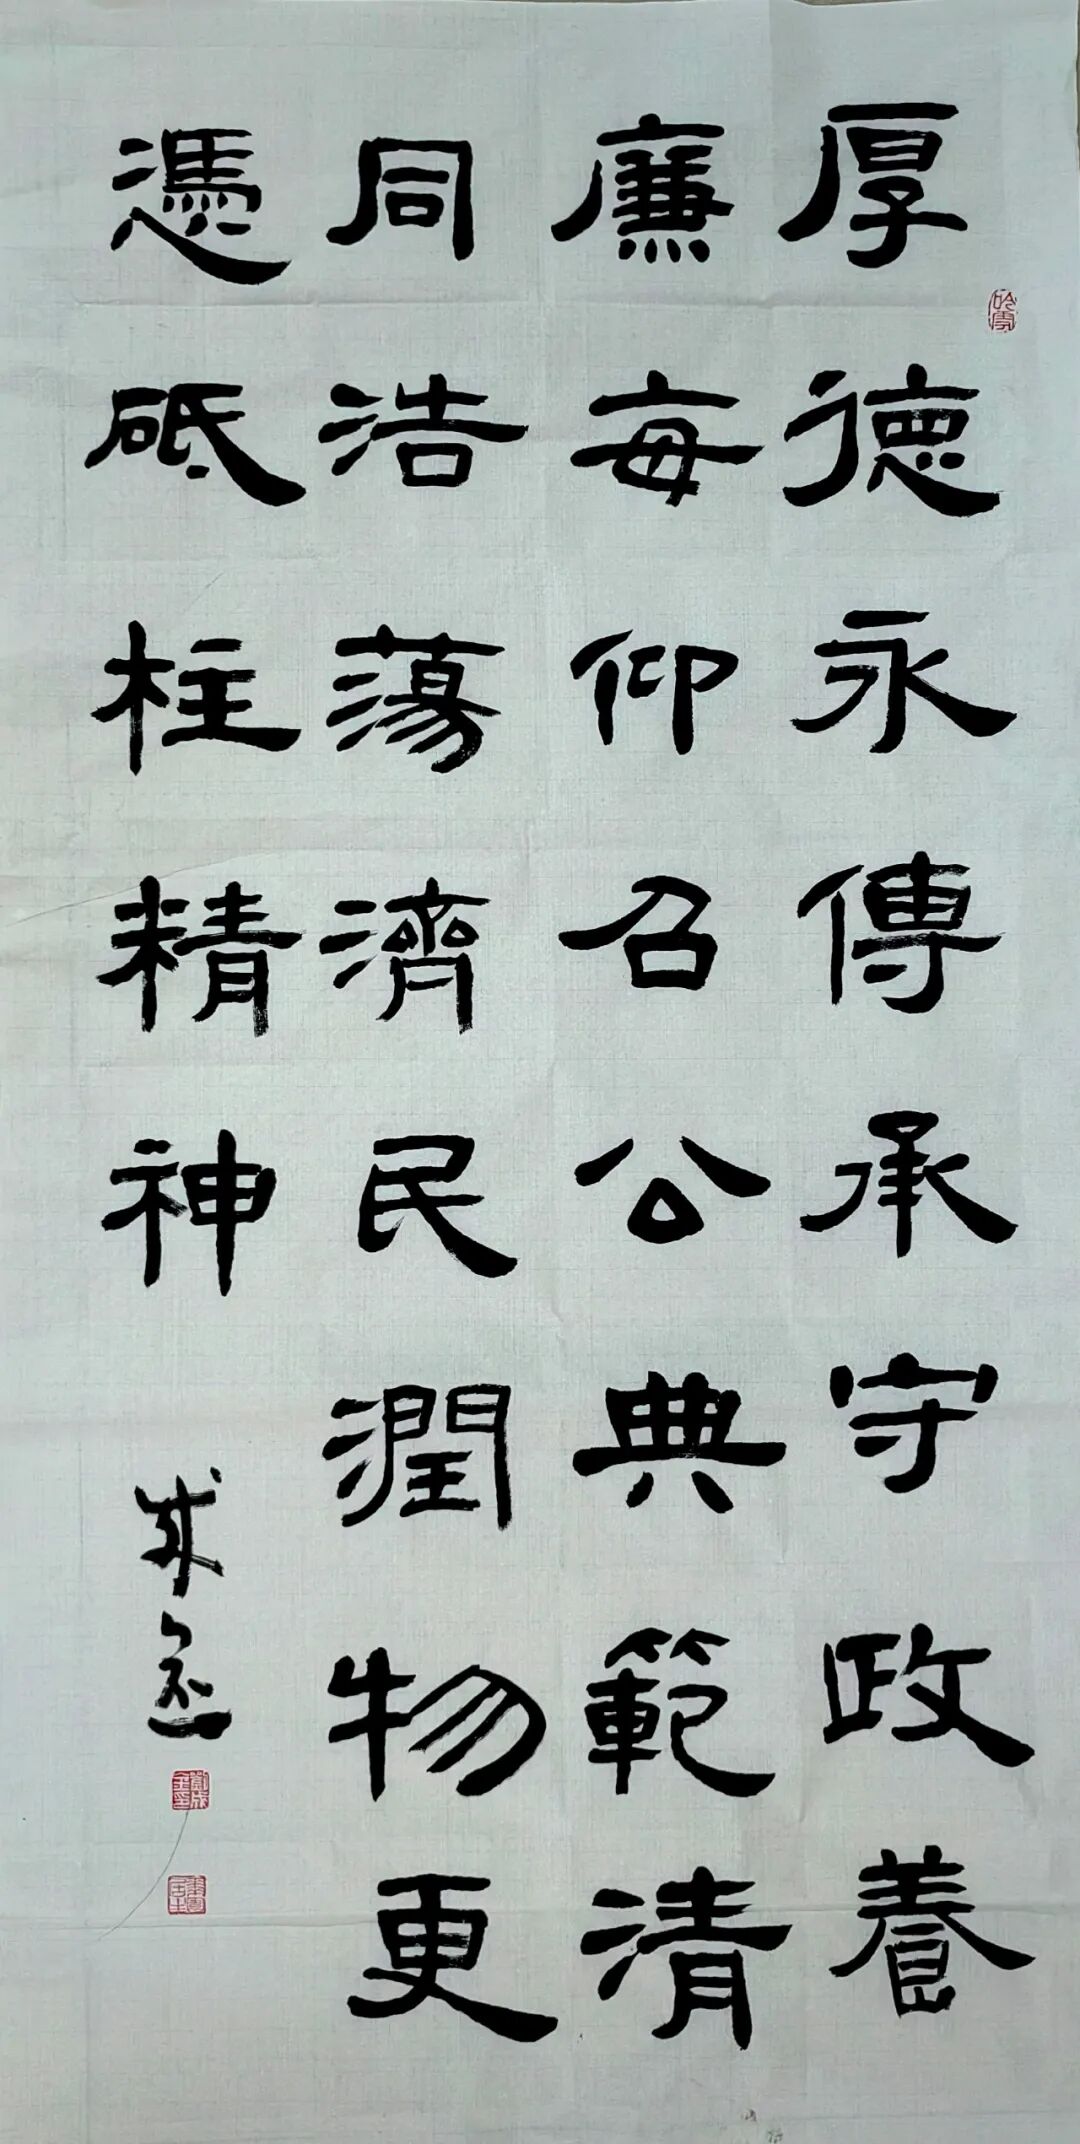 厚德永傳承守政養
廉每仰召公典範清
同浩蕩濟民潤物更
憑砥柱精神
成金